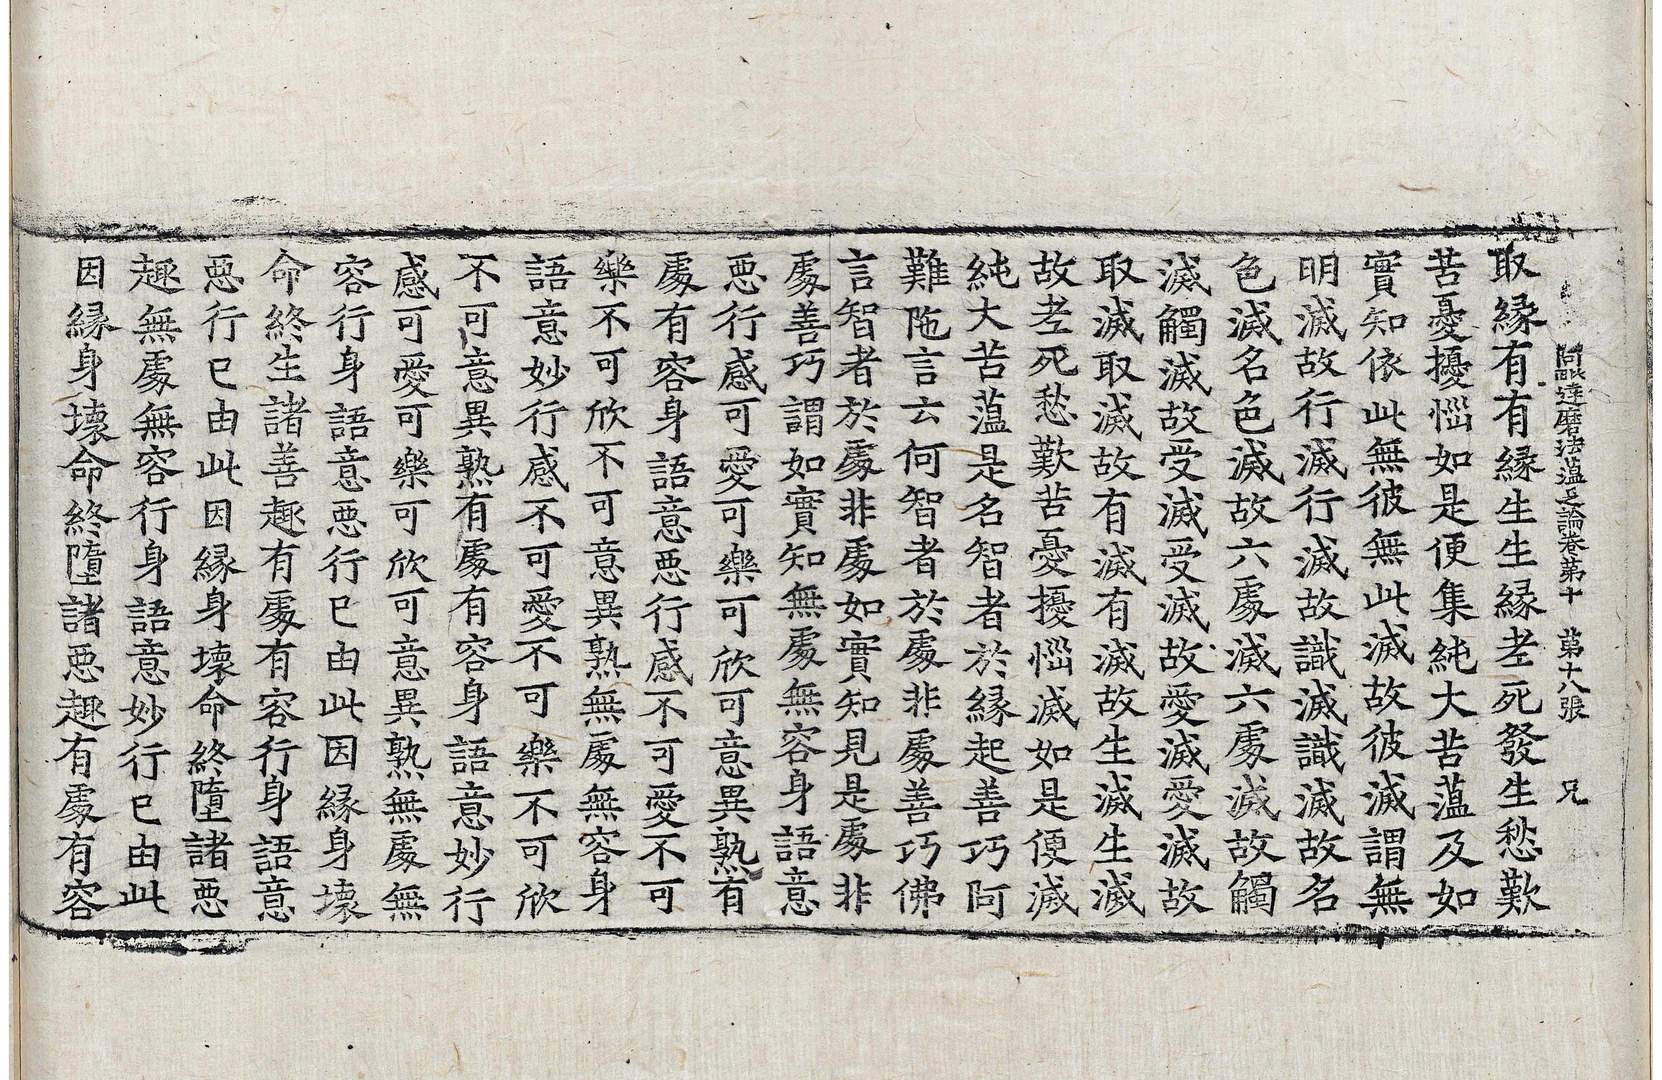 阿毗達磨法蘊足論卷第十　第十八張　兄
取緣有有緣生生緣老死發生愁歎
苦憂擾惱如是便集純大苦蘊及如
實知依此無彼無此滅故彼滅謂無
明滅故行滅行滅故識滅識滅故名
色滅名色滅故六處滅六處滅故觸
滅觸滅故受滅受滅故愛滅愛滅故
取滅取滅故有滅有滅故生滅生滅
故老死愁歎苦憂擾惱滅如是便滅
純大苦蘊是名智者於緣起善巧阿
難陁言云何智者於處非處善巧佛
言智者於處非處如實知見是處非
處善巧謂如實知無處無容身語意
惡行感可愛可樂可欣可意異熟有
處有容身語意惡行感不可愛不可
樂不可欣不可意異熟無處無容身
語意妙行感不可愛不可樂不可欣
不可意異熟有處有容身語意妙行
感可愛可樂可欣可意異熟無處無
容行身語意惡行已由此因緣身壞
命終生諸善趣有處有容行身語意
惡行已由此因緣身壞命終墮諸惡
趣無處無容行身語意妙行已由此
因緣身壞命終墮諸惡趣有處有容